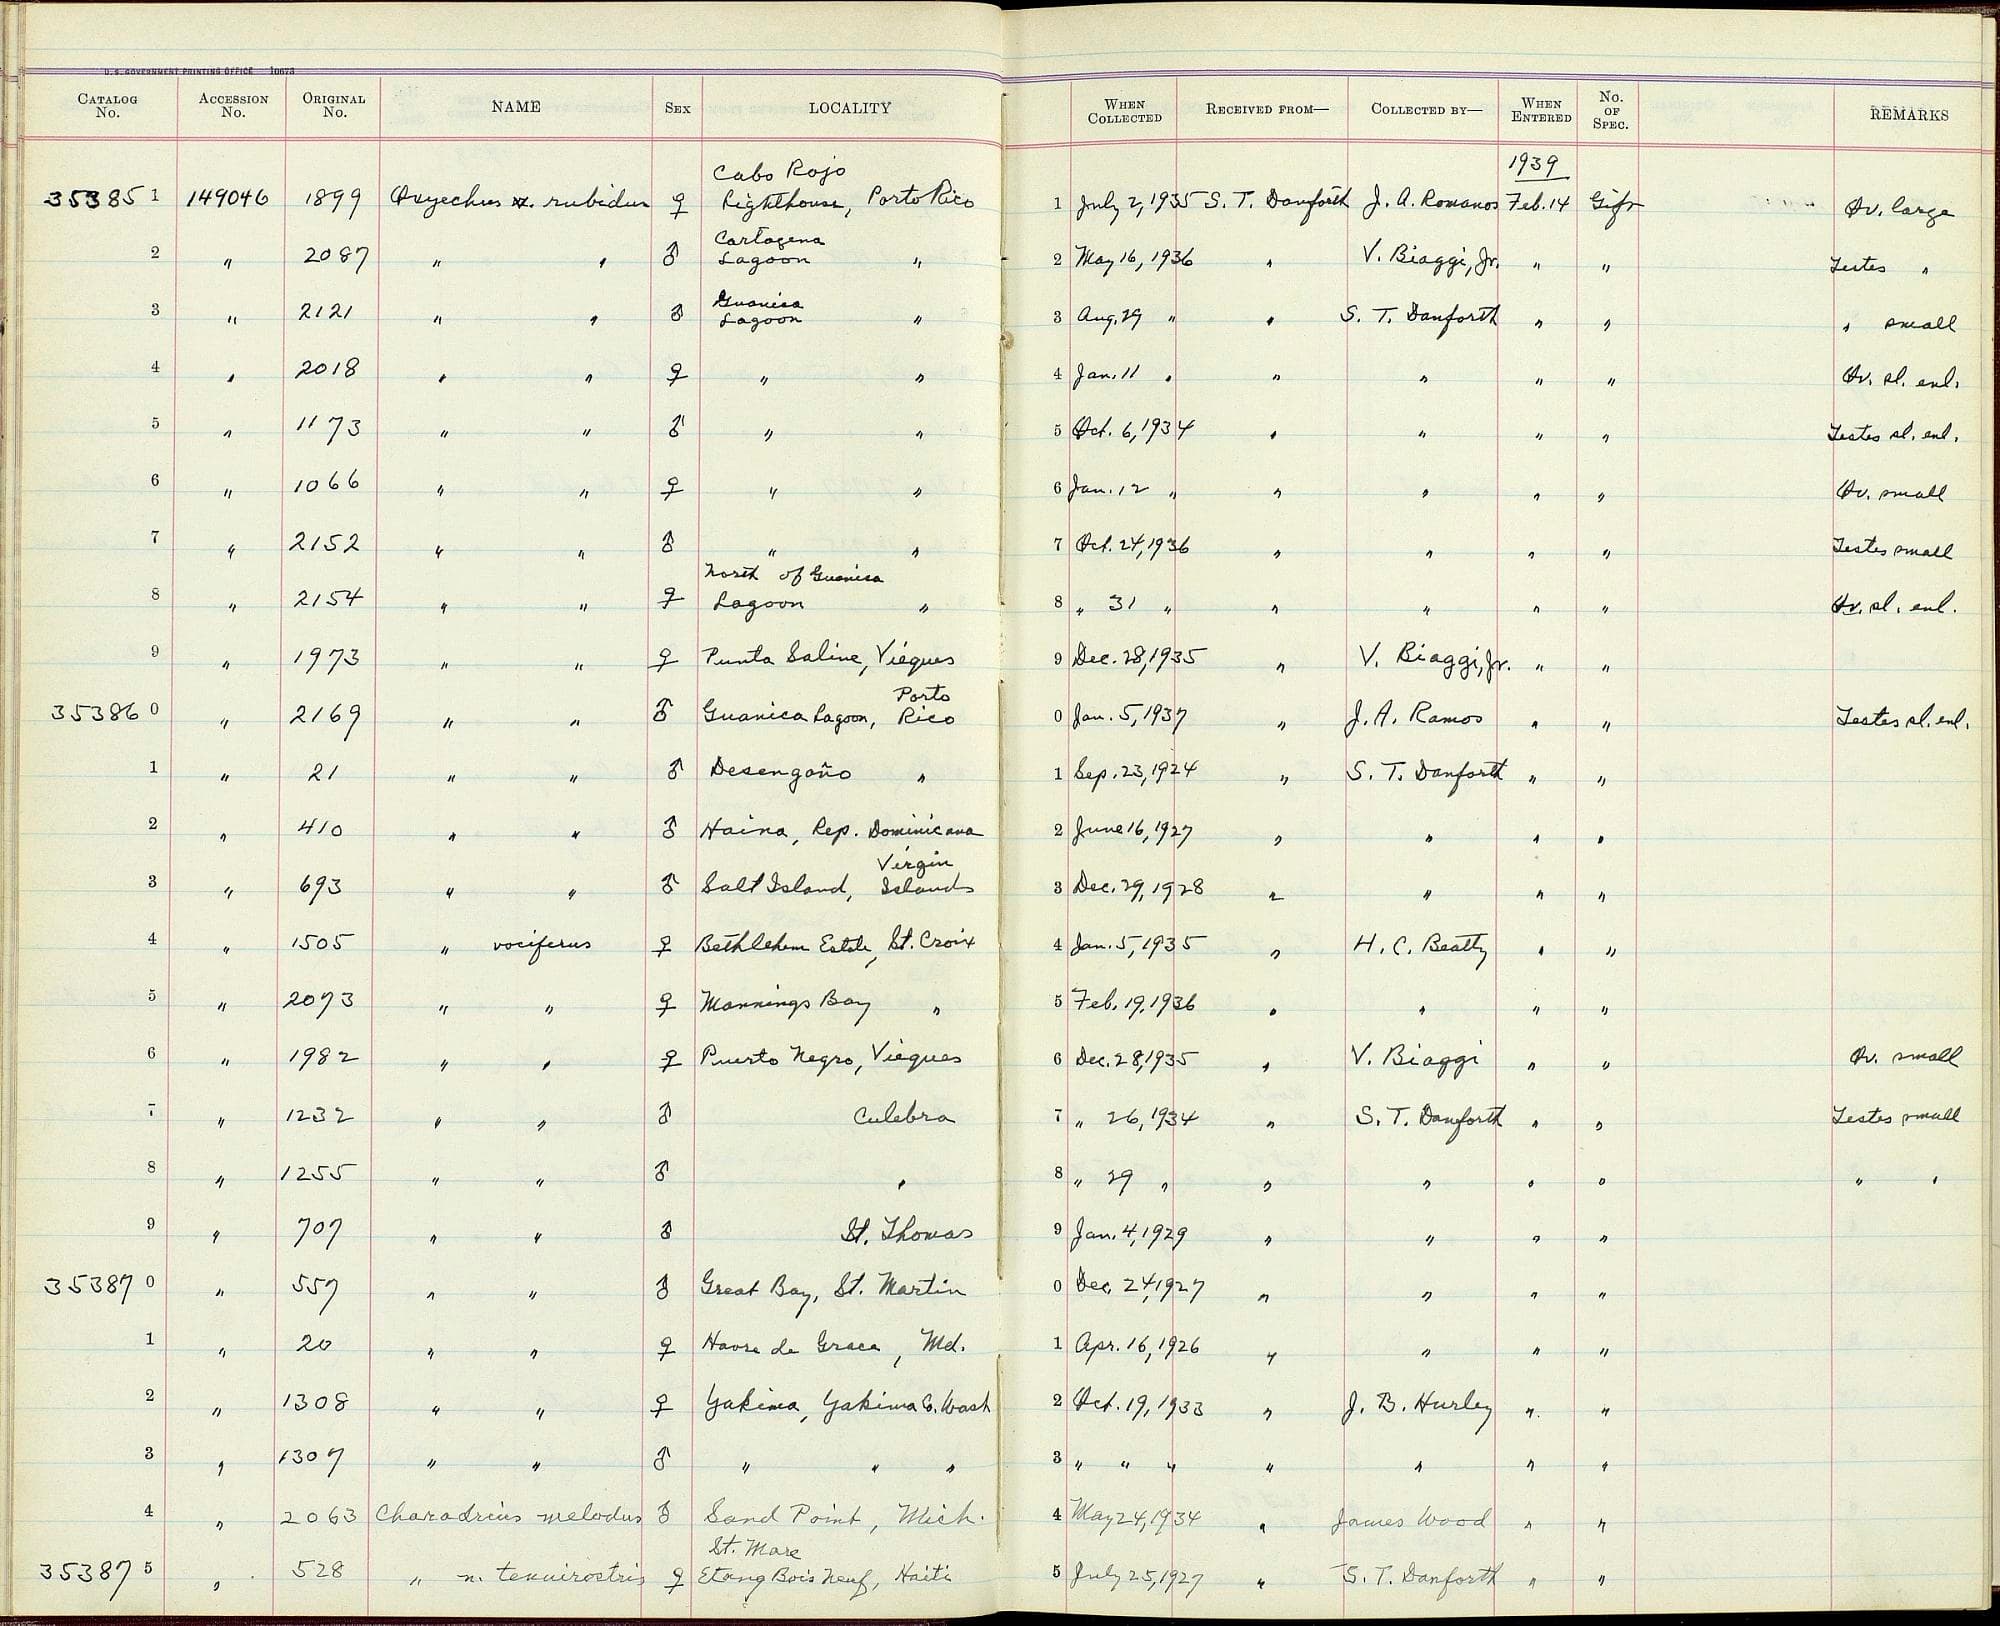 U.S. GOVERNMENT PRINTING OFFICE 10673
CATALOG No. ACCESSION No. ORIGINAL No. NAME SEX LOCALITY WHEN COLLECTED RECEIVED FROM— COLLECTED BY— WHEN ENTERED No. OF SPEC. REMARKS
Cabo Rojo 1939
353851 149046 1899 Oxyechus v. rubidus ♀ Lighthouse, Porto Rico 1 July 2, 1935 S. T. Danforth J. A. Romanos Feb. 14 Gift Ov. large
Cartagena
2 " 2087 " " ♂ Lagoon " 2 May 16, 1936 " V. Biaggi, Jr. " " Testes "
Guanica
3 " 2121 " " ♂ Lagoon " 3 Aug. 29 " " S. T. Danforth " " " small
4 " 2018 " " ♀ " " 4 Jan. 11 " " " " " Ov. sl. enl.
5 " 1173 " " ♂ " " 5 Oct. 6, 1934 " " " " Testes sl. enl.
6 " 1066 " " ♀ " " 6 Jan. 12 " " " " " Ov. small
7 " 2152 " " ♂ " " 7 Oct. 24, 1936 " " " " Testes small
North of Guanica
8 " 2154 " " ♀ Lagoon " 8 " 31 " " " " " Ov. sl. enl.
9 " 1973 " " ♀ Punta Saline, Vieques 9 Dec. 28, 1935 " V. Biaggi, Jr. " "
Porto
353860 " 2169 " " ♂ Guanica Lagoon, Rico 0 Jan. 5, 1937 " J. A. Ramos " " Testes sl. enl.
1 " 21 " " ♂ Desengaño " 1 Sep. 23, 1924 " S. T. Danforth " "
2 " 410 " " ♂ Haina, Rep. Dominicana 2 June 16, 1927 " " " "
Virgin
3 " 693 " " ♂ Salt Island, Islands 3 Dec. 29, 1928 " " " "
4 " 1505 " vociferus ♀ Bethlehem Estate, St. Croix 4 Jan. 5, 1935 " H. C. Beatty " "
5 " 2073 " " ♀ Mannings Bay " 5 Feb. 19, 1936 " " " "
6 " 1982 " " ♀ Puerto Negro, Vieques 6 Dec. 28, 1935 " V. Biaggi " " Ov. small
7 " 1232 " " ♂ Culebra 7 " 26, 1934 " S. T. Danforth " " Testes small
8 " 1255 " " ♂ " 8 " 29 " " " " " " "
9 " 707 " " ♂ St. Thomas 9 Jan. 4, 1929 " " " "
353870 " 557 " " ♂ Great Bay, St. Martin 0 Dec. 24, 1927 " " " "
1 " 20 " " ♀ Havre de Grace, Md. 1 Apr. 16, 1926 " " " "
2 " 1308 " " ♀ Yakima, Yakima Co. Wash 2 Oct. 19, 1933 " J. B. Hurley " "
3 " 1307 " " ♂ " " " 3 " " " " " " "
4 " 2063 Charadrius melodus ♂ Sand Point, Mich. 4 May 24, 1934 " James Wood " "
St. Marc
353875 " 528 " n. tenuirostris ♀ Etang Bois Neuf, Haiti 5 July 25, 1927 " S. T. Danforth " "